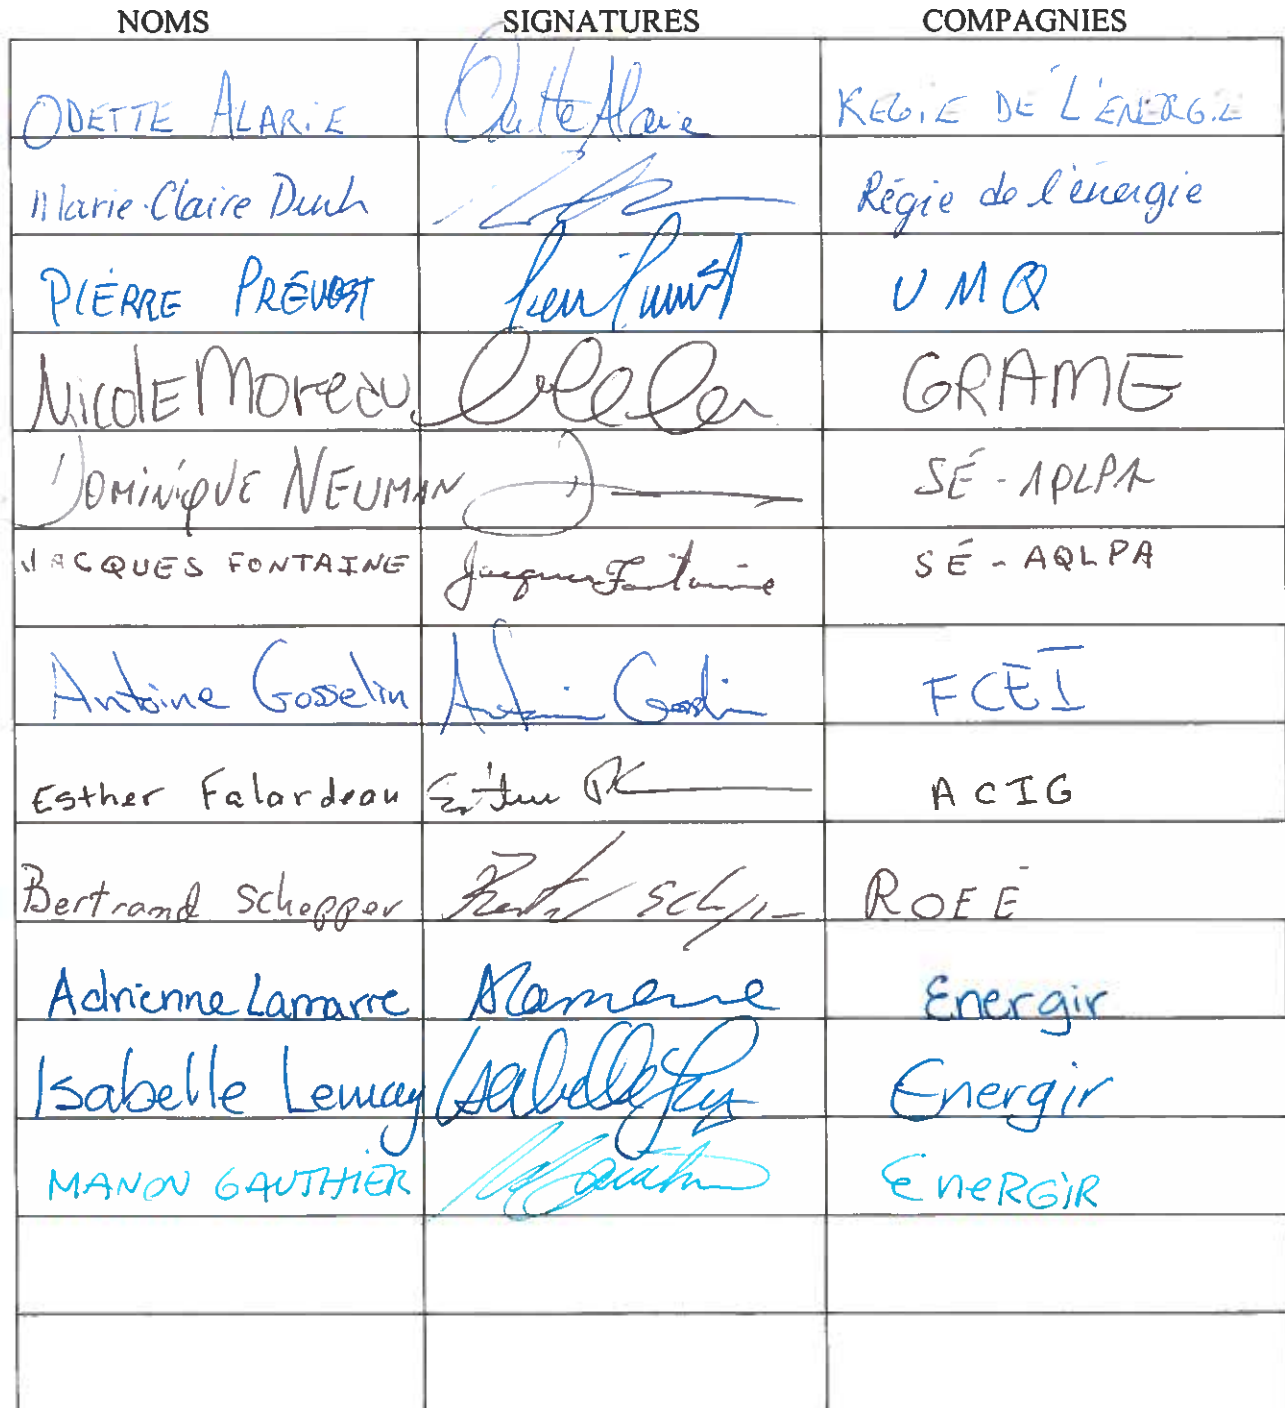 NOMS SIGNATURES COMPAGNIES
ODETTE ALARIE Odette Alarie RÉGIE DE L'ÉNERGIE
Marie-Claire Régie de l'énergie
PIERRE PRÉVOST UMQ
Nicole Moreau GRAME
DOMINIQUE NEUMAN SÉ-AQLPA
JACQUES FONTAINE Jacques Fontaine SÉ-AQLPA
Antoine Gosselin Antoine Gosselin FCEI
Esther Falardeau ACIG
Bertrand Schepper ROEÉ
Adrienne Lamarre ALamarre Energir
Isabelle Lemay Isabelle Energir
MANON GAUTHIER MGauthier ENERGIR